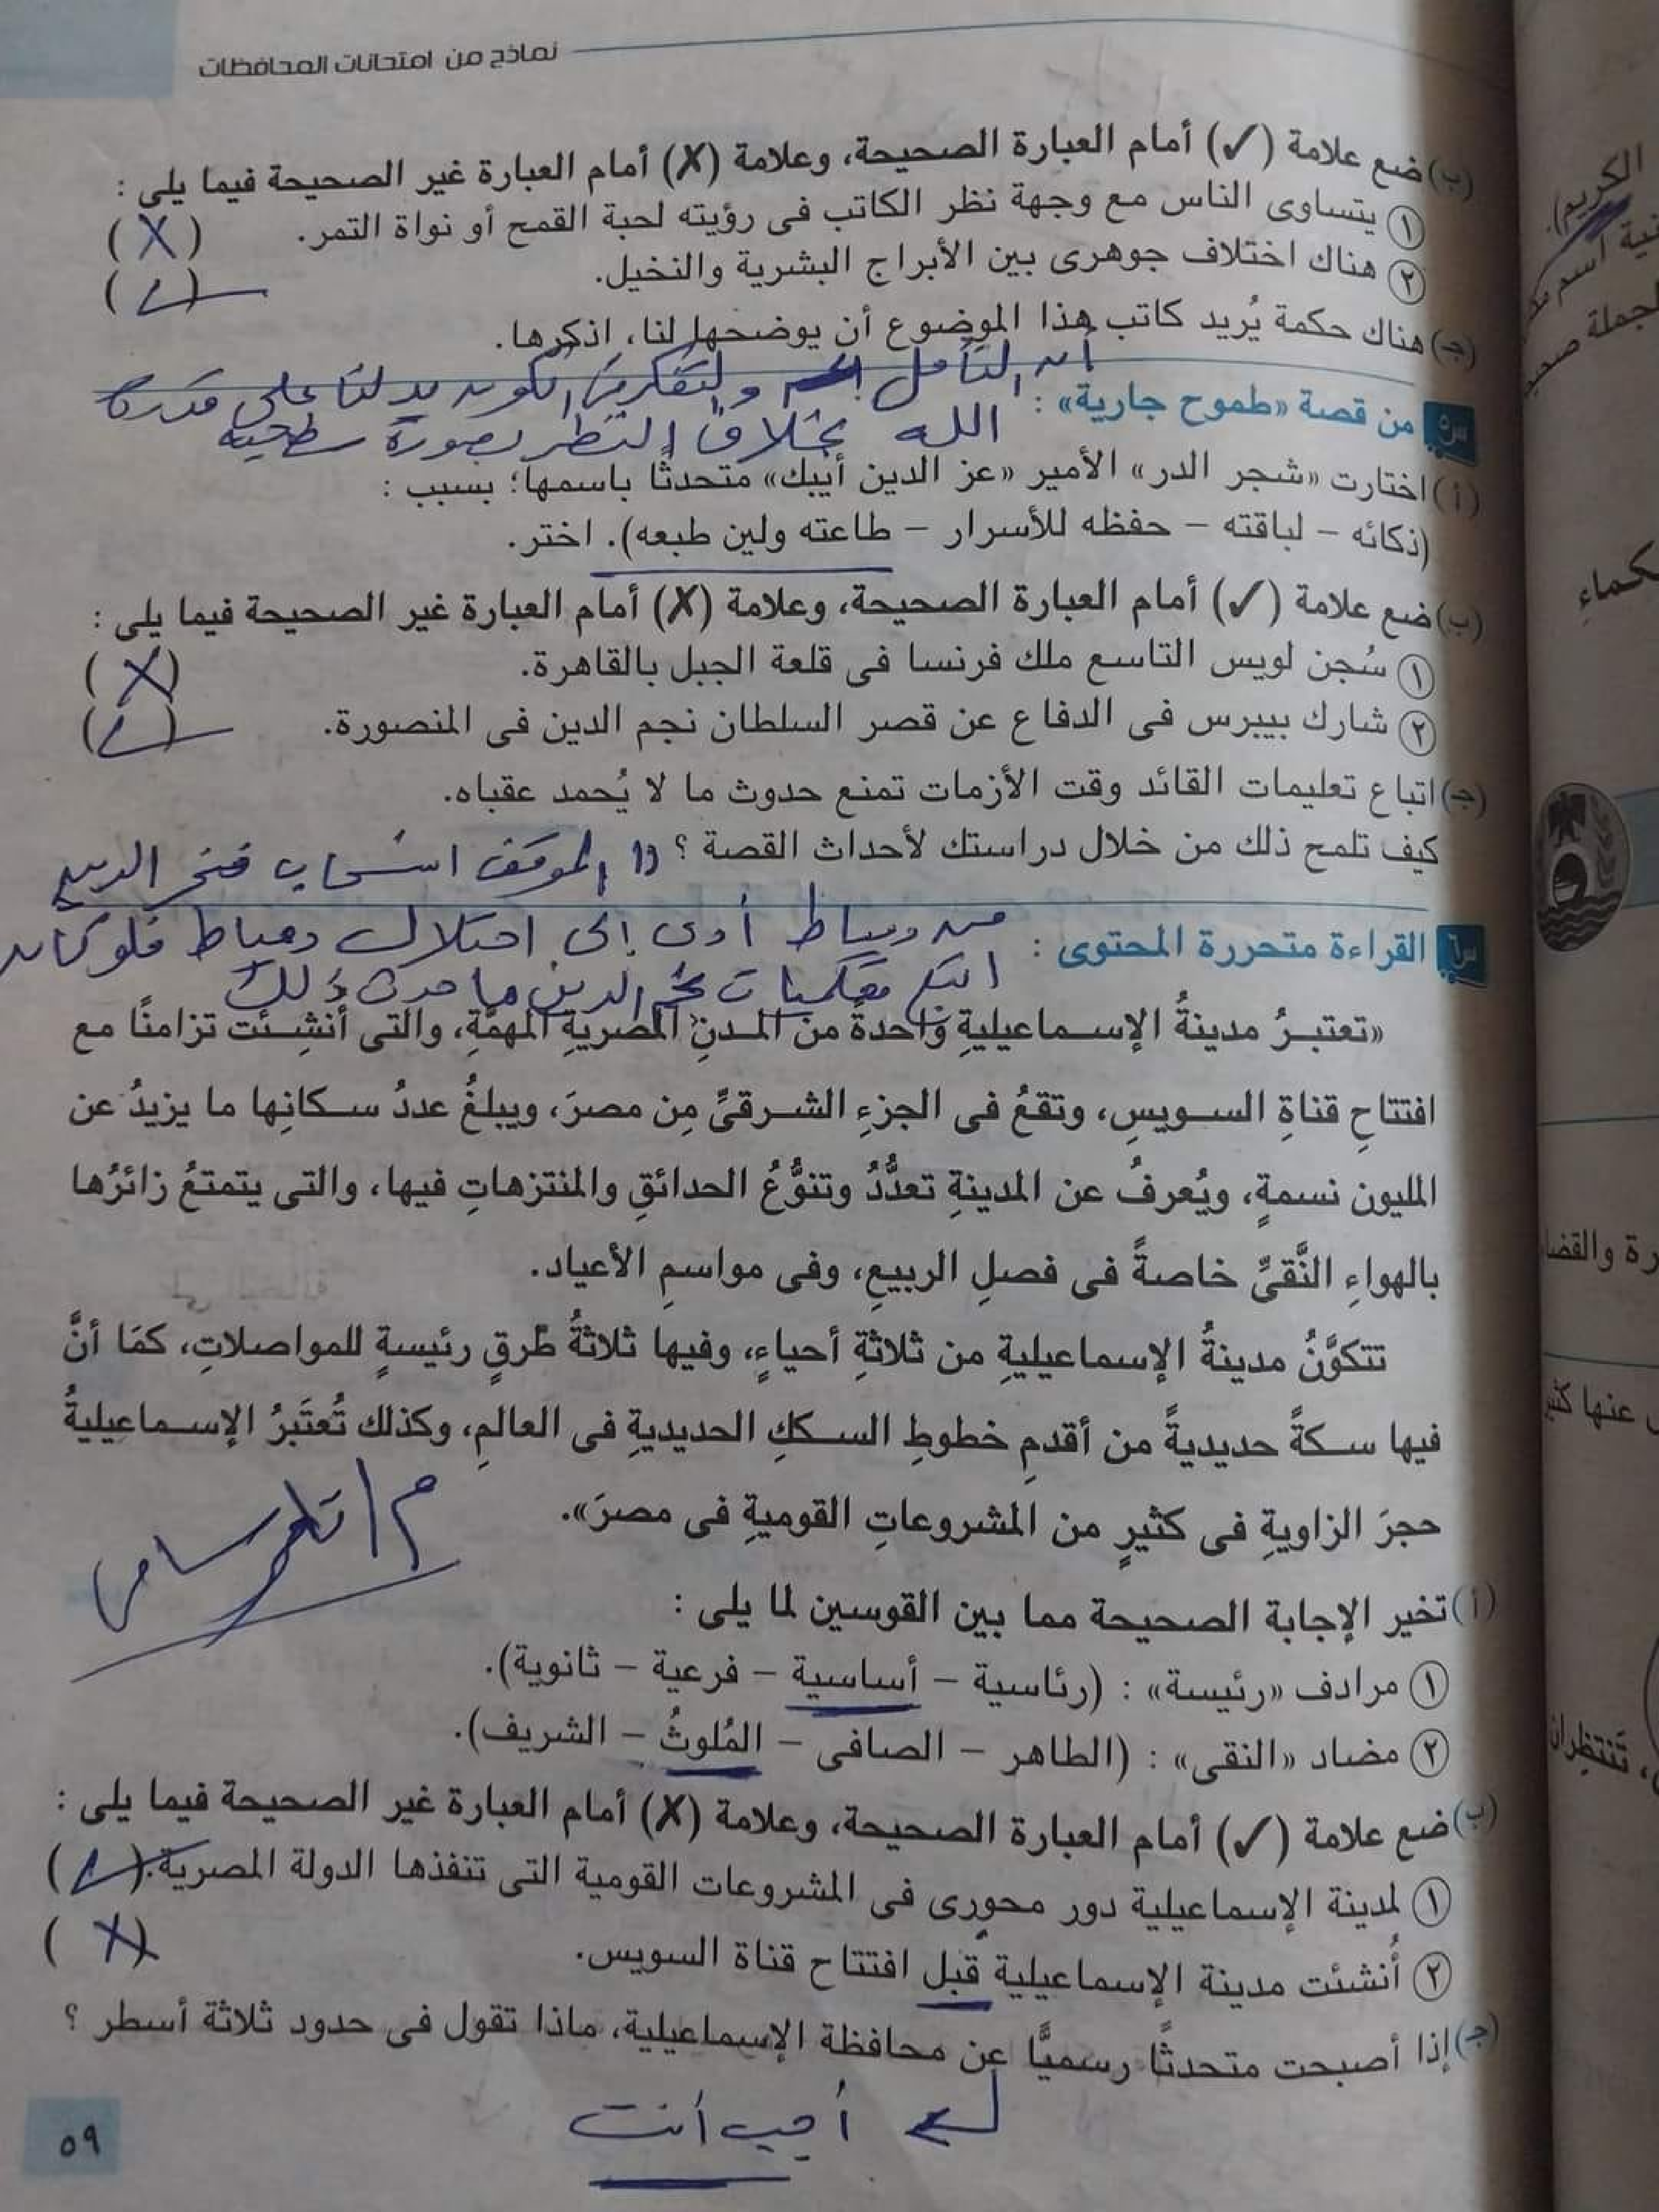 نماذج من امتحانات المحافظات
(ب) ضع علامة (✓) أمام العبارة الصحيحة، وعلامة (✗) أمام العبارة غير الصحيحة فيما يلى :
① يتساوى الناس مع وجهة نظر الكاتب فى رؤيته لحبة القمح أو نواة التمر. (X)
② هناك اختلاف جوهرى بين الأبراج البشرية والنخيل. (✓)
(جـ) هناك حكمة يُريد كاتب هذا الموضوع أن يوضحها لنا، اذكرها.
أن التأمل والتفكر فى الكون يدلنا على قدرة
الله بخلاف النظر بصورة سطحية
س٥ من قصة «طموح جارية» :
(أ) اختارت «شجر الدر» الأمير «عز الدين أيبك» متحدثًا باسمها؛ بسبب :
(ذكائه – لباقته – حفظه للأسرار – طاعته ولين طبعه). اختر.
(ب) ضع علامة (✓) أمام العبارة الصحيحة، وعلامة (✗) أمام العبارة غير الصحيحة فيما يلى :
① سُجن لويس التاسع ملك فرنسا فى قلعة الجبل بالقاهرة. (X)
② شارك بيبرس فى الدفاع عن قصر السلطان نجم الدين فى المنصورة. (✓)
(جـ) اتباع تعليمات القائد وقت الأزمات تمنع حدوث ما لا يُحمد عقباه.
كيف تلمح ذلك من خلال دراستك لأحداث القصة ؟ الموقف انسحاب فخر الدين
من دمياط أدى إلى احتلال دمياط فلو كان
اتبع تعليمات نجم الدين ما حدث ذلك
س٦ القراءة متحررة المحتوى :
«تعتبرُ مدينةُ الإسماعيليةِ واحدةً من المدنِ المصريةِ المهمَّةِ، والتى أُنشِئت تزامنًا مع
افتتاحِ قناةِ السويسِ، وتقعُ فى الجزءِ الشرقىِّ مِن مصرَ، ويبلغُ عددُ سكانِها ما يزيدُ عن
المليون نسمةٍ، ويُعرفُ عن المدينةِ تعدُّدُ وتنوُّعُ الحدائقِ والمنتزهاتِ فيها، والتى يتمتعُ زائرُها
بالهواءِ النَّقىِّ خاصةً فى فصلِ الربيعِ، وفى مواسمِ الأعياد.
تتكوَّنُ مدينةُ الإسماعيليةِ من ثلاثةِ أحياءٍ، وفيها ثلاثةُ طُرقٍ رئيسةٍ للمواصلاتِ، كمَا أنَّ
فيها سكةً حديديةً من أقدمِ خطوطِ السككِ الحديديةِ فى العالمِ، وكذلك تُعتَبرُ الإسماعيليةُ
حجرَ الزاويةِ فى كثيرٍ من المشروعاتِ القوميةِ فى مصرَ».
(أ) تخير الإجابة الصحيحة مما بين القوسين لما يلى :
① مرادف «رئيسة» : (رئاسية – أساسية – فرعية – ثانوية).
② مضاد «النقى» : (الطاهر – الصافى – المُلوثُ – الشريف).
(ب) ضع علامة (✓) أمام العبارة الصحيحة، وعلامة (✗) أمام العبارة غير الصحيحة فيما يلى :
① لمدينة الإسماعيلية دور محورى فى المشروعات القومية التى تنفذها الدولة المصرية. (✓)
② أُنشئت مدينة الإسماعيلية قبل افتتاح قناة السويس. (X)
(جـ) إذا أصبحت متحدثًا رسميًّا عن محافظة الإسماعيلية، ماذا تقول فى حدود ثلاثة أسطر ؟
أجب أنت
٥٩